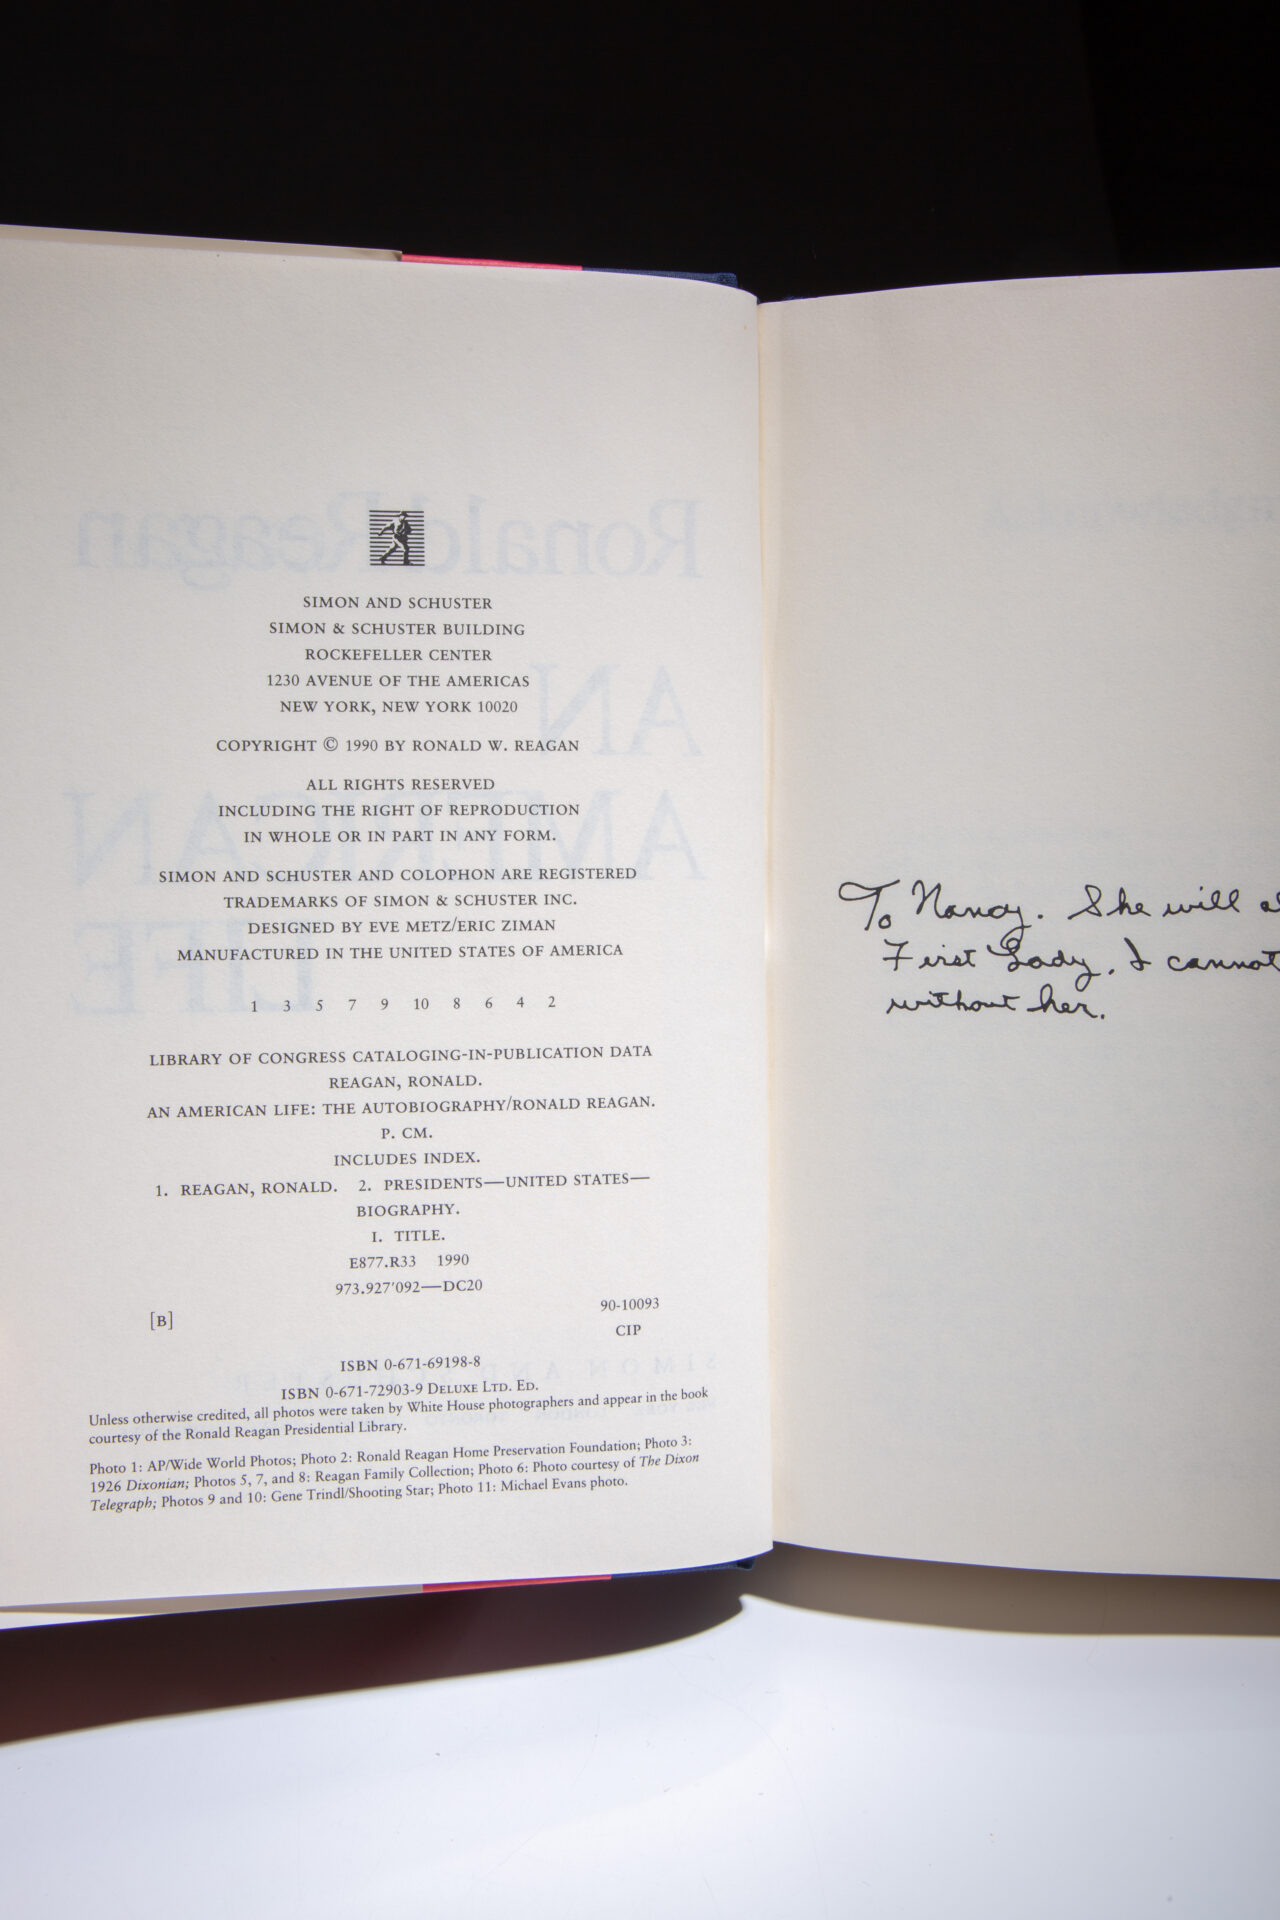 SIMON AND SCHUSTER
SIMON & SCHUSTER BUILDING
ROCKEFELLER CENTER
1230 AVENUE OF THE AMERICAS
NEW YORK, NEW YORK 10020
COPYRIGHT © 1990 BY RONALD W. REAGAN
ALL RIGHTS RESERVED
INCLUDING THE RIGHT OF REPRODUCTION
IN WHOLE OR IN PART IN ANY FORM.
SIMON AND SCHUSTER AND COLOPHON ARE REGISTERED
TRADEMARKS OF SIMON & SCHUSTER INC.
DESIGNED BY EVE METZ/ERIC ZIMAN
MANUFACTURED IN THE UNITED STATES OF AMERICA
1 3 5 7 9 10 8 6 4 2
LIBRARY OF CONGRESS CATALOGING-IN-PUBLICATION DATA
REAGAN, RONALD.
AN AMERICAN LIFE: THE AUTOBIOGRAPHY/RONALD REAGAN.
P. CM.
INCLUDES INDEX.
1. REAGAN, RONALD. 2. PRESIDENTS—UNITED STATES—
BIOGRAPHY.
I. TITLE.
E877.R33 1990
973.927'092—DC20
[B] 90-10093
CIP
ISBN 0-671-69198-8
ISBN 0-671-72903-9 DELUXE LTD. ED.
Unless otherwise credited, all photos were taken by White House photographers and appear in the book
courtesy of the Ronald Reagan Presidential Library.
Photo 1: AP/Wide World Photos; Photo 2: Ronald Reagan Home Preservation Foundation; Photo 3:
1926 Dixonian; Photos 5, 7, and 8: Reagan Family Collection; Photo 6: Photo courtesy of The Dixon
Telegraph; Photos 9 and 10: Gene Trindl/Shooting Star; Photo 11: Michael Evans photo.
To Nancy. She will
First Lady. I cannot
without her.